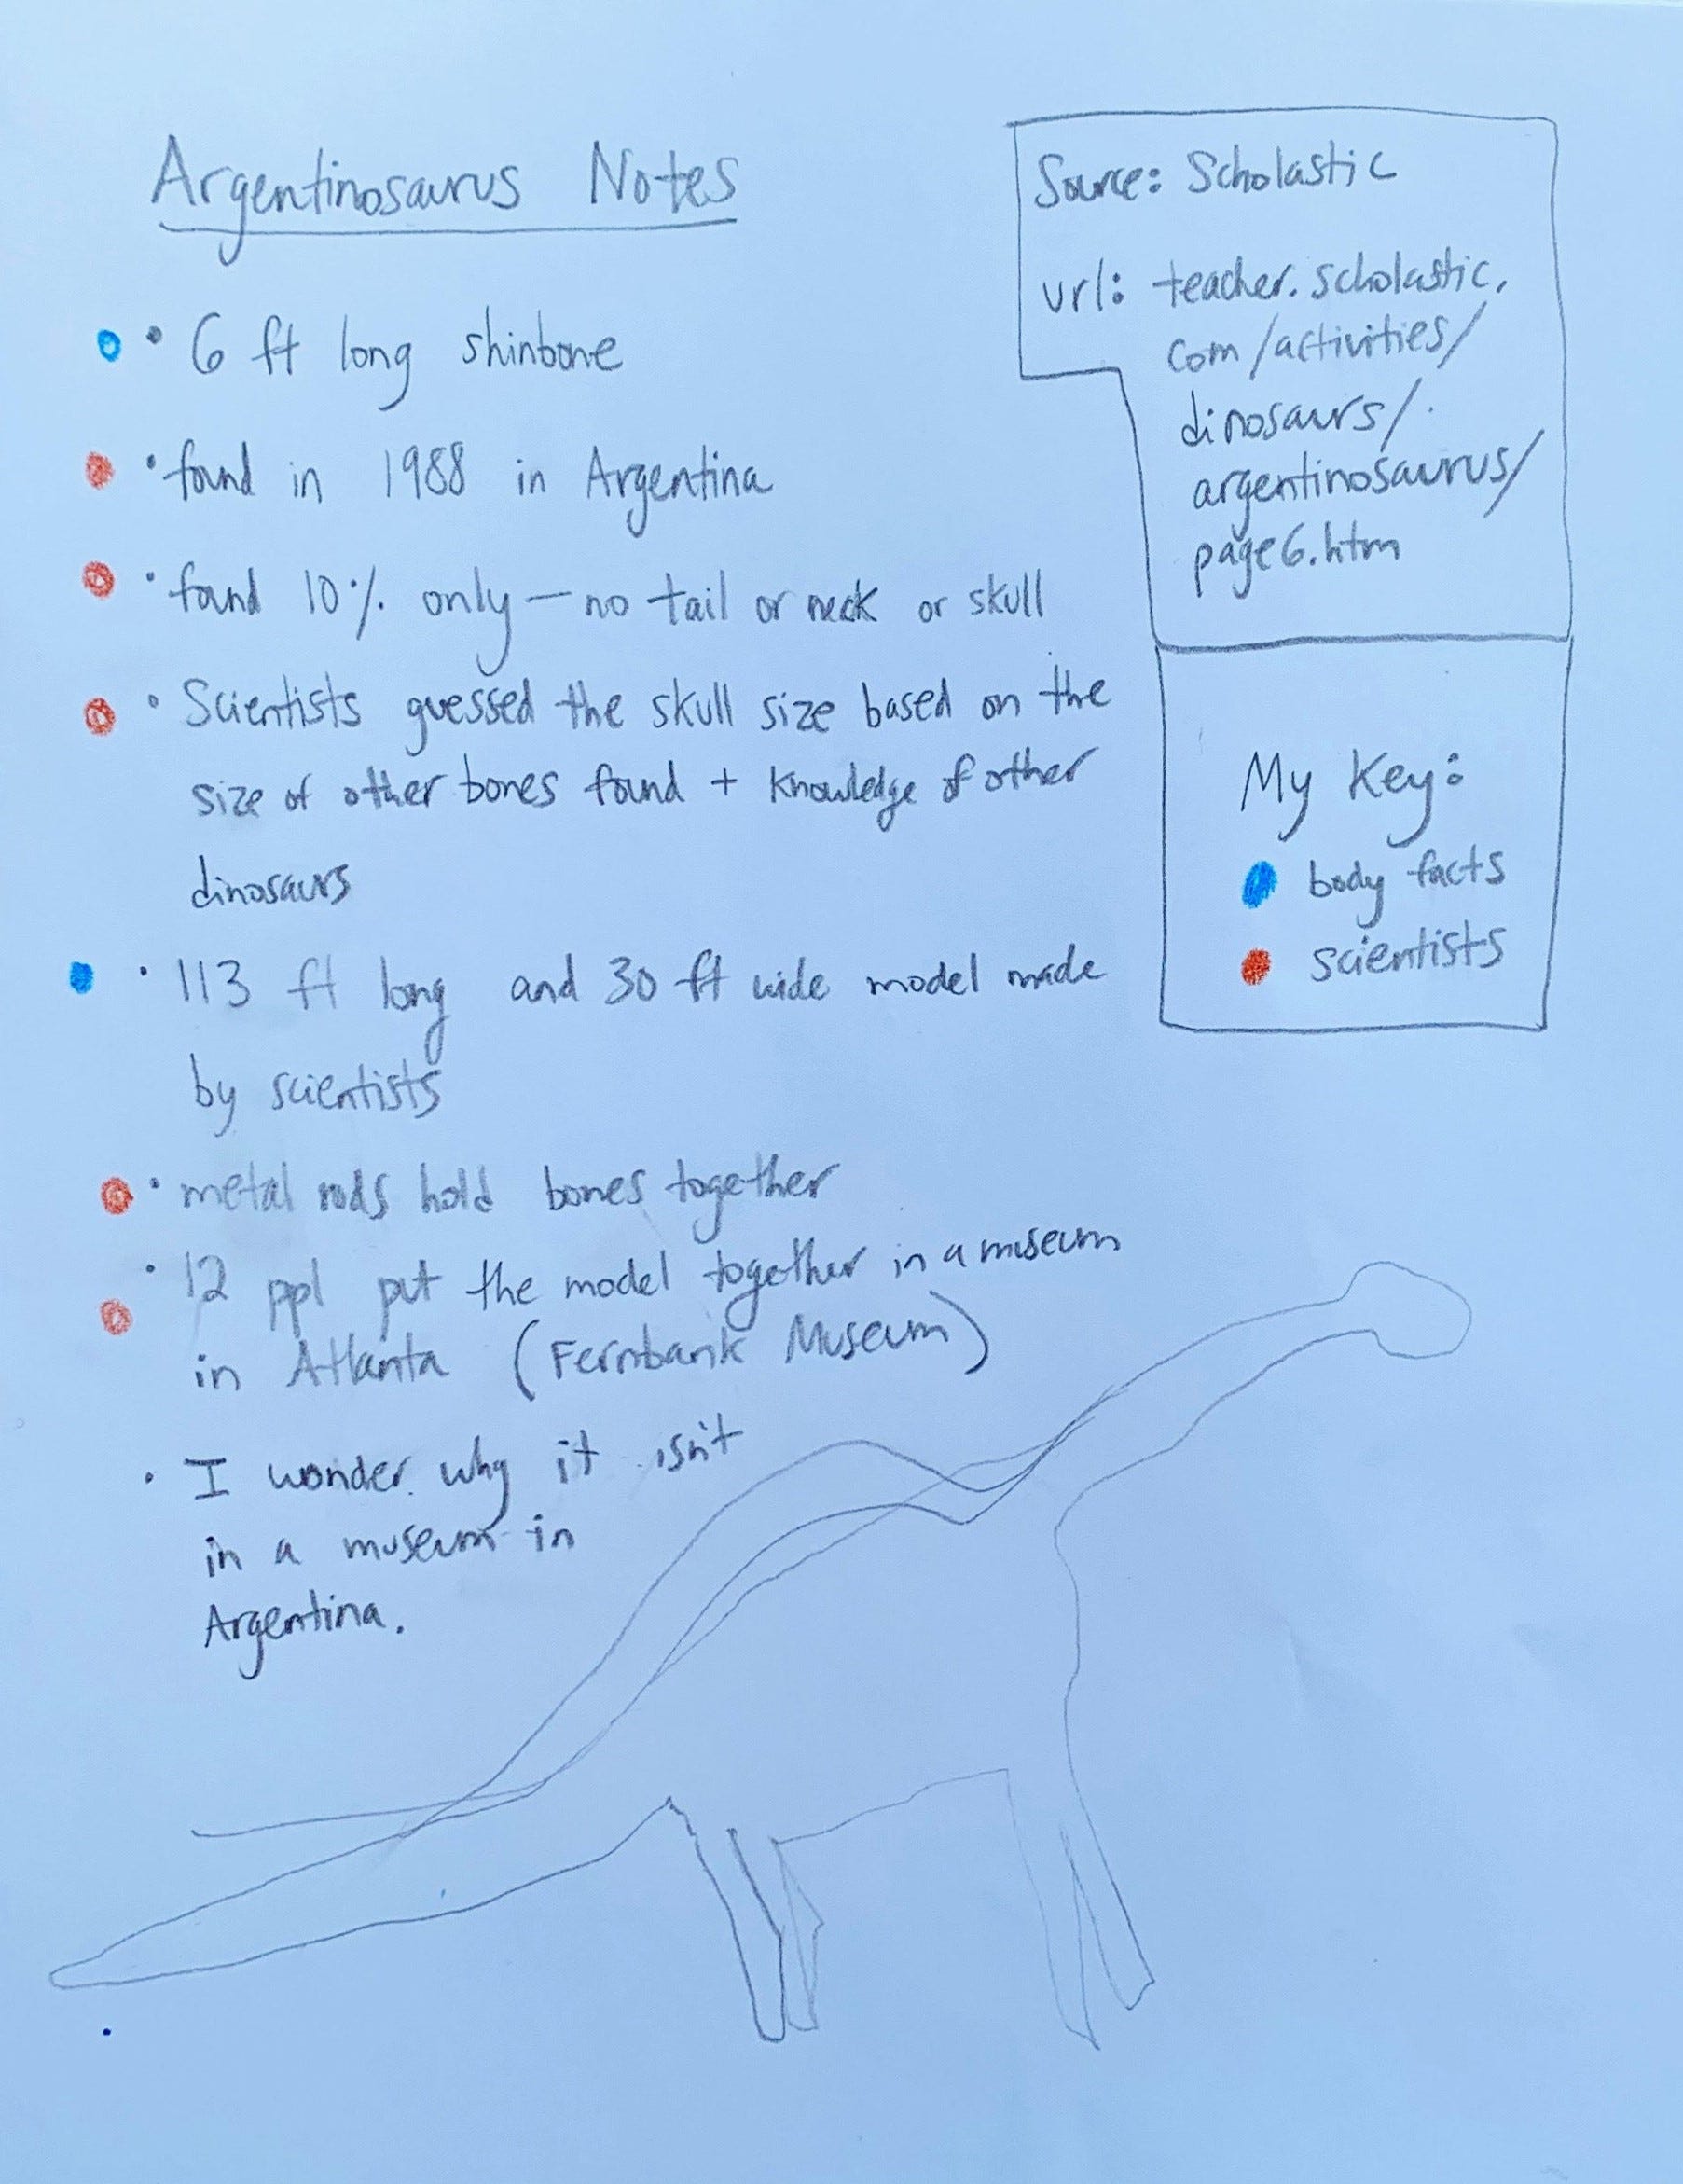 Argentinosaurus Notes
• 6 ft long shinbone
• found in 1988 in Argentina
• found 10% only – no tail or neck or skull
• Scientists guessed the skull size based on the
size of other bones found + knowledge of other
dinosaurs
• 113 ft long and 30 ft wide model made
by scientists
• metal rods hold bones together
• 12 ppl put the model together in a museum
in Atlanta (Fernbank Museum)
• I wonder why it isn't
in a museum in
Argentina.
Source: Scholastic
url: teacher.scholastic.
com/activities/
dinosaurs/
argentinosaurus/
page6.htm
My Key:
body facts
scientists